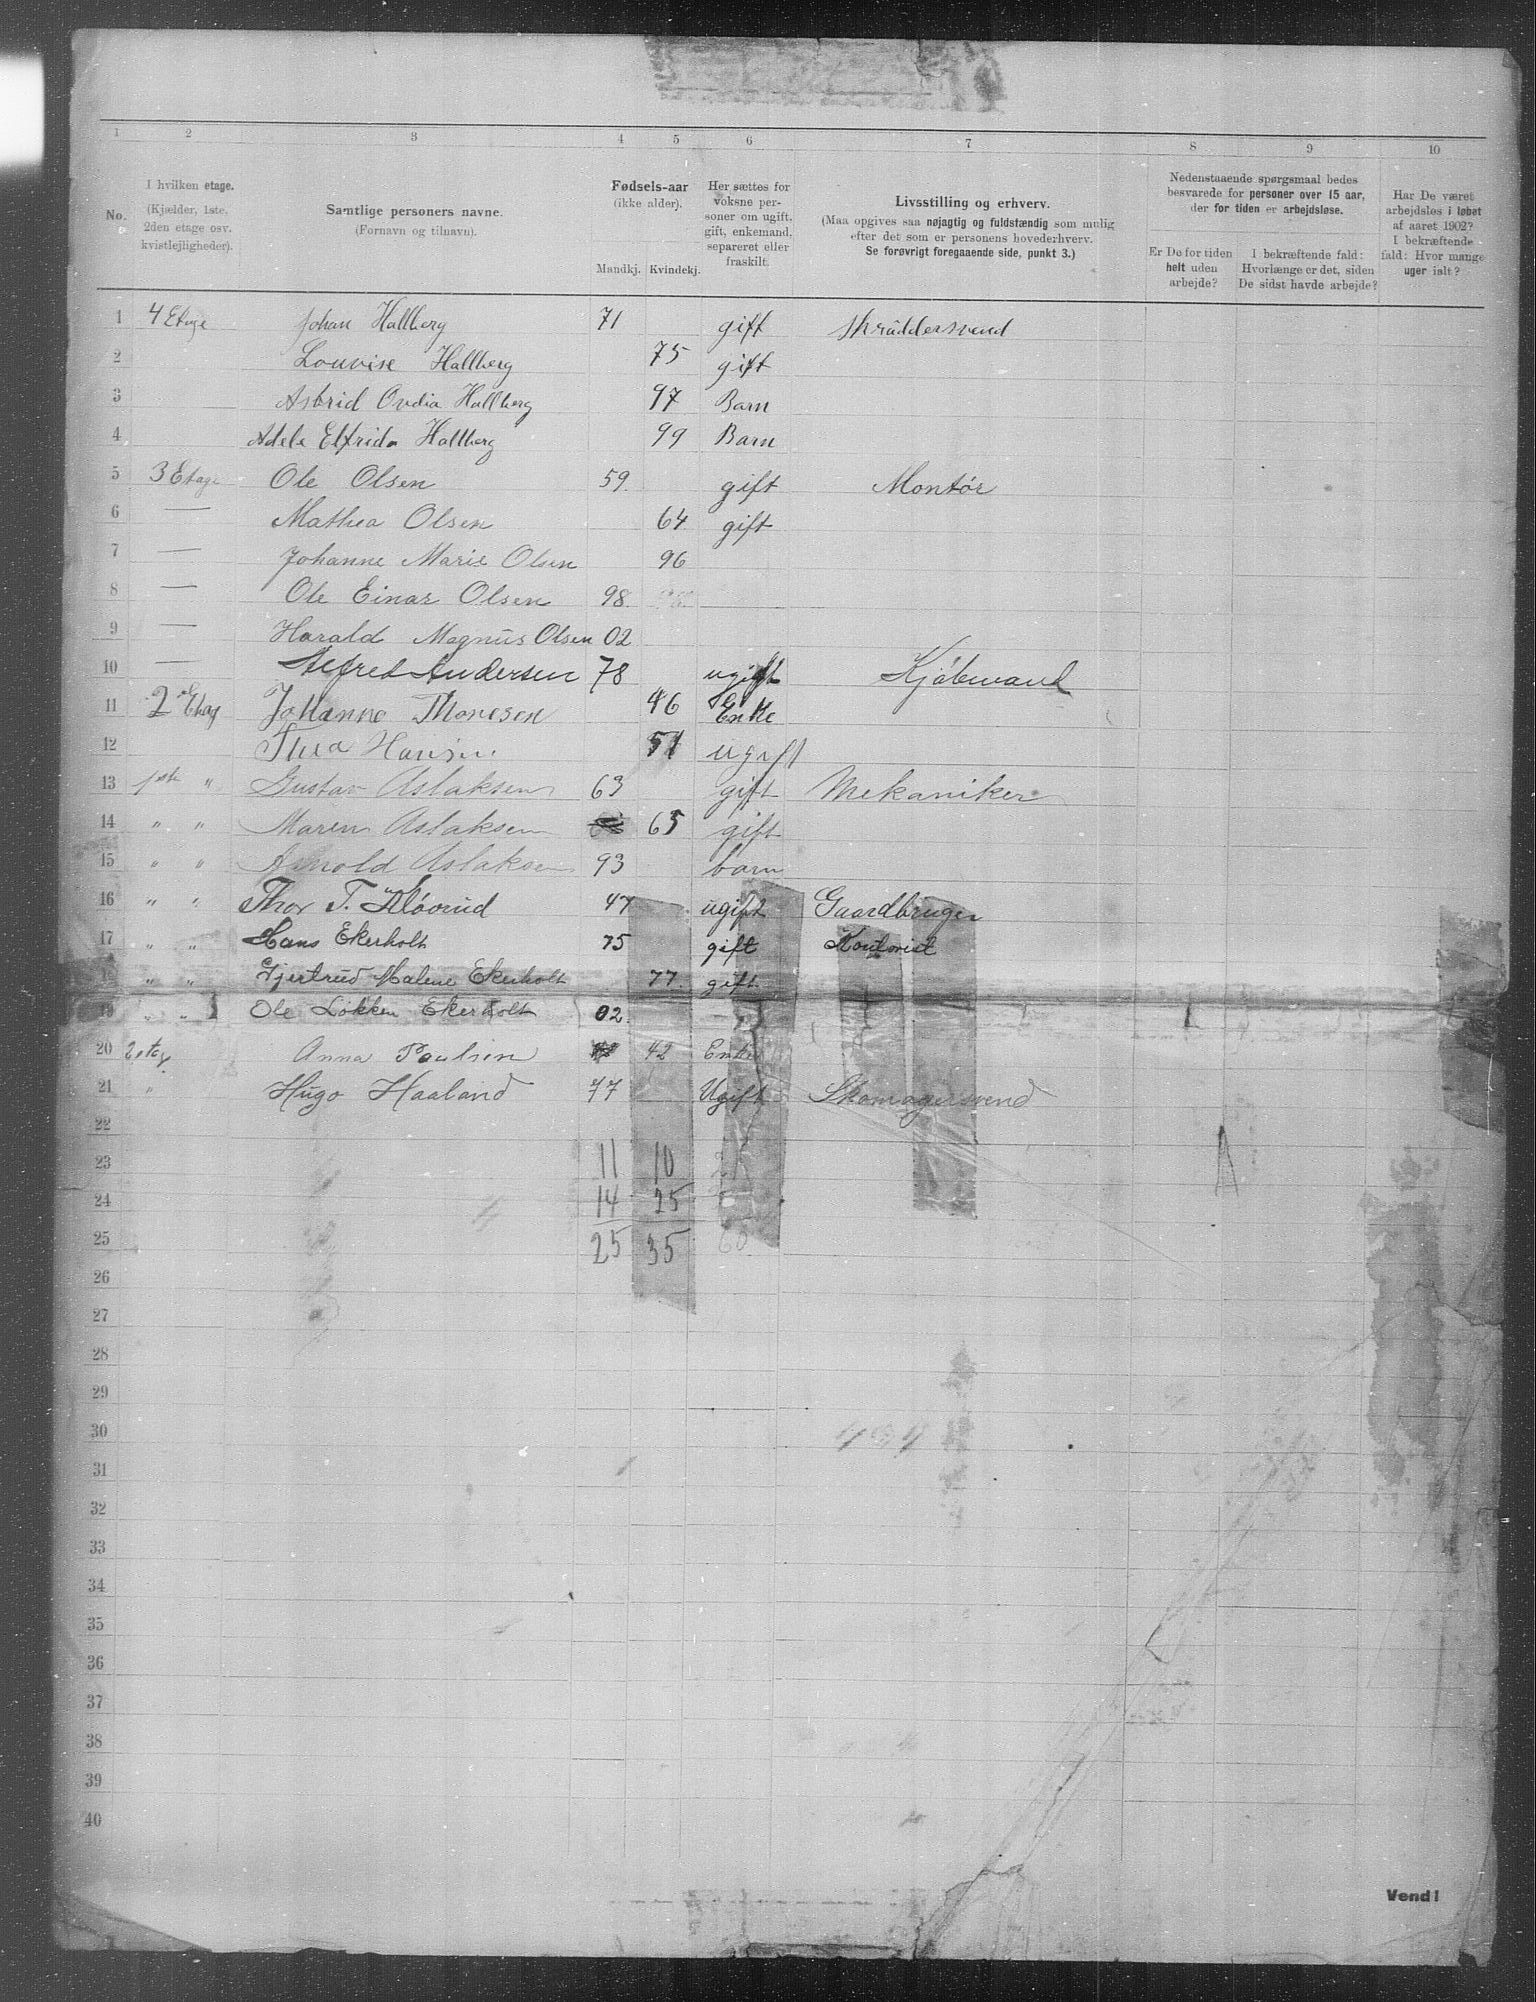 1 2 3 4 5 6 7 8 9 10
No.
I hvilken etage.
(Kjælder, 1ste.
2den etage osv.
kvistlejligheder).
Samtlige personers navne.
(Fornavn og tilnavn).
Fødsels-aar
(ikke alder).
Mandkj. Kvindekj.
Her sættes for
voksne per-
soner om ugift,
gift, enkemand,
separeret eller
fraskilt.
Livsstilling og erhverv.
(Maa opgives saa nøjagtig og fuldstændig som mulig
efter det som er personens hovederhverv.
Se forøvrigt foregaaende side, punkt 3.)
Nedenstaaende spørgsmaal bedes
besvarede for personer over 15 aar,
der for tiden er arbejdsløse.
Er De for tiden
helt uden
arbejde?
I bekræftende fald:
Hvorlænge er det, siden
De sidst havde arbejde?
Har De været
arbejdsløs i løbet
af aaret 1902?
I bekræftende
fald: Hvor mange
uger ialt?
1 4 Etage Johan Hallberg 71 gift Skräddersvend
2 Louvise Hallberg 75 gift
3 Astrid Ovdia Hallberg 97 Barn
4 Adele Elfrida Hallberg 99 Barn
5 3 Etage Ole Olsen 59. gift Montør
6 — Mathea Olsen 64 gift
7 — Johanne Marie Olsen 96
8 — Ole Einar Olsen 98.
9 — Harald Magnus Olsen 02
10 — Alfred Andersen 78 ugift Kjøbmand
11 2 Etag Johanne Thoresen 46 Enke
12 Thea Hansen 51 ugift
13 1ste " Gustav Aslaksen 63 gift Mekaniker
14 " " Maren Aslaksen 65 gift
15 " " Arnold Aslaksen 93 barn
16 " " Thor T. 47 ugift Gaardbruger
17 " " Hans Ekerholt 75 gift Kontorist
18 " " Gjertrud Malene Ekerholt 77. gift
19 " " Ole Løkken Ekerholt 02.
20 2 etag Anna Poulsen 42 Enke
21 " Hugo Haaland 77 Ugift Skomagersvend
22
23 11 10
24 14 25
25 25 35 60
26
27
28
29
30
31
32
33
34
35
36
37
38
39
40
Vend!